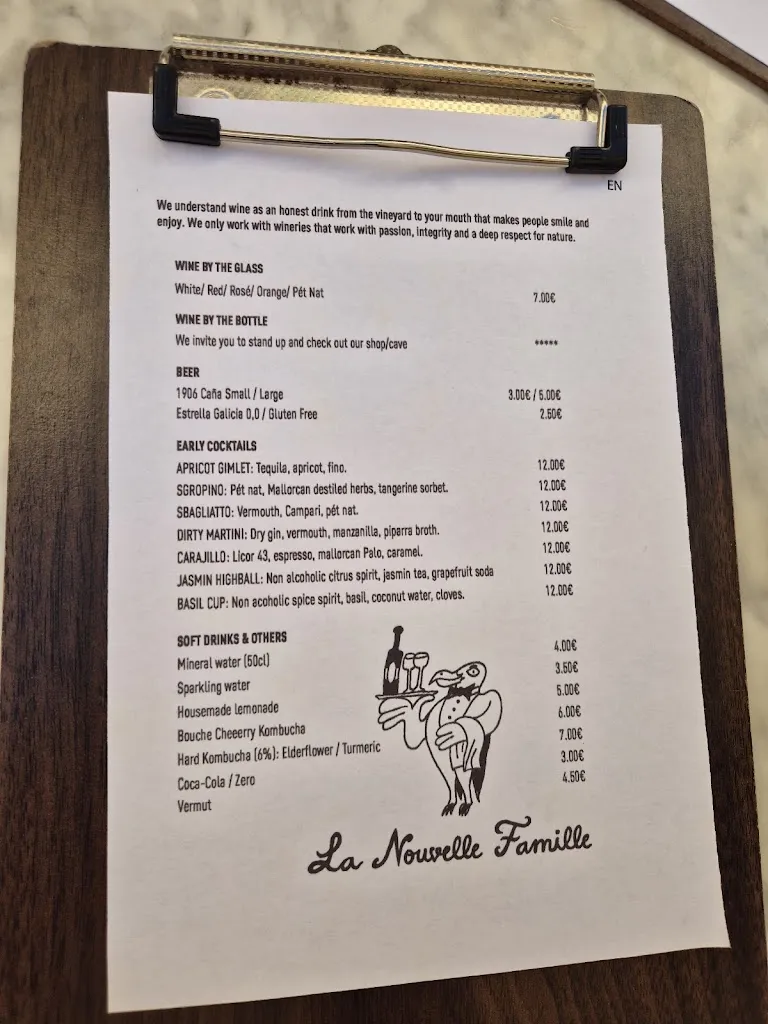 EN
We understand wine as an honest drink from the vineyard to your mouth that makes people smile and
enjoy. We only work with wineries that work with passion, integrity and a deep respect for nature.
WINE BY THE GLASS
White/ Red/ Rosé/ Orange/ Pét Nat 7.00€
WINE BY THE BOTTLE
We invite you to stand up and check out our shop/cave *****
BEER
1906 Caña Small / Large 3.00€ / 5.00€
Estrella Galicia 0,0 / Gluten Free 2.50€
EARLY COCKTAILS
APRICOT GIMLET: Tequila, apricot, fino. 12.00€
SGROPINO: Pét nat, Mallorcan destiled herbs, tangerine sorbet. 12.00€
SBAGLIATTO: Vermouth, Campari, pét nat. 12.00€
DIRTY MARTINI: Dry gin, vermouth, manzanilla, piparra broth. 12.00€
CARAJILLO: Licor 43, espresso, mallorcan Palo, caramel. 12.00€
JASMIN HIGHBALL: Non alcoholic citrus spirit, jasmin tea, grapefruit soda 12.00€
BASIL CUP: Non acoholic spice spirit, basil, coconut water, cloves. 12.00€
SOFT DRINKS & OTHERS
Mineral water (50cl) 4.00€
Sparkling water 3.50€
Housemade lemonade 5.00€
Bouche Cheeerry Kombucha 6.00€
Hard Kombucha (6%): Elderflower / Turmeric 7.00€
Coca-Cola / Zero 3.00€
Vermut 4.50€
La Nouvelle Famille